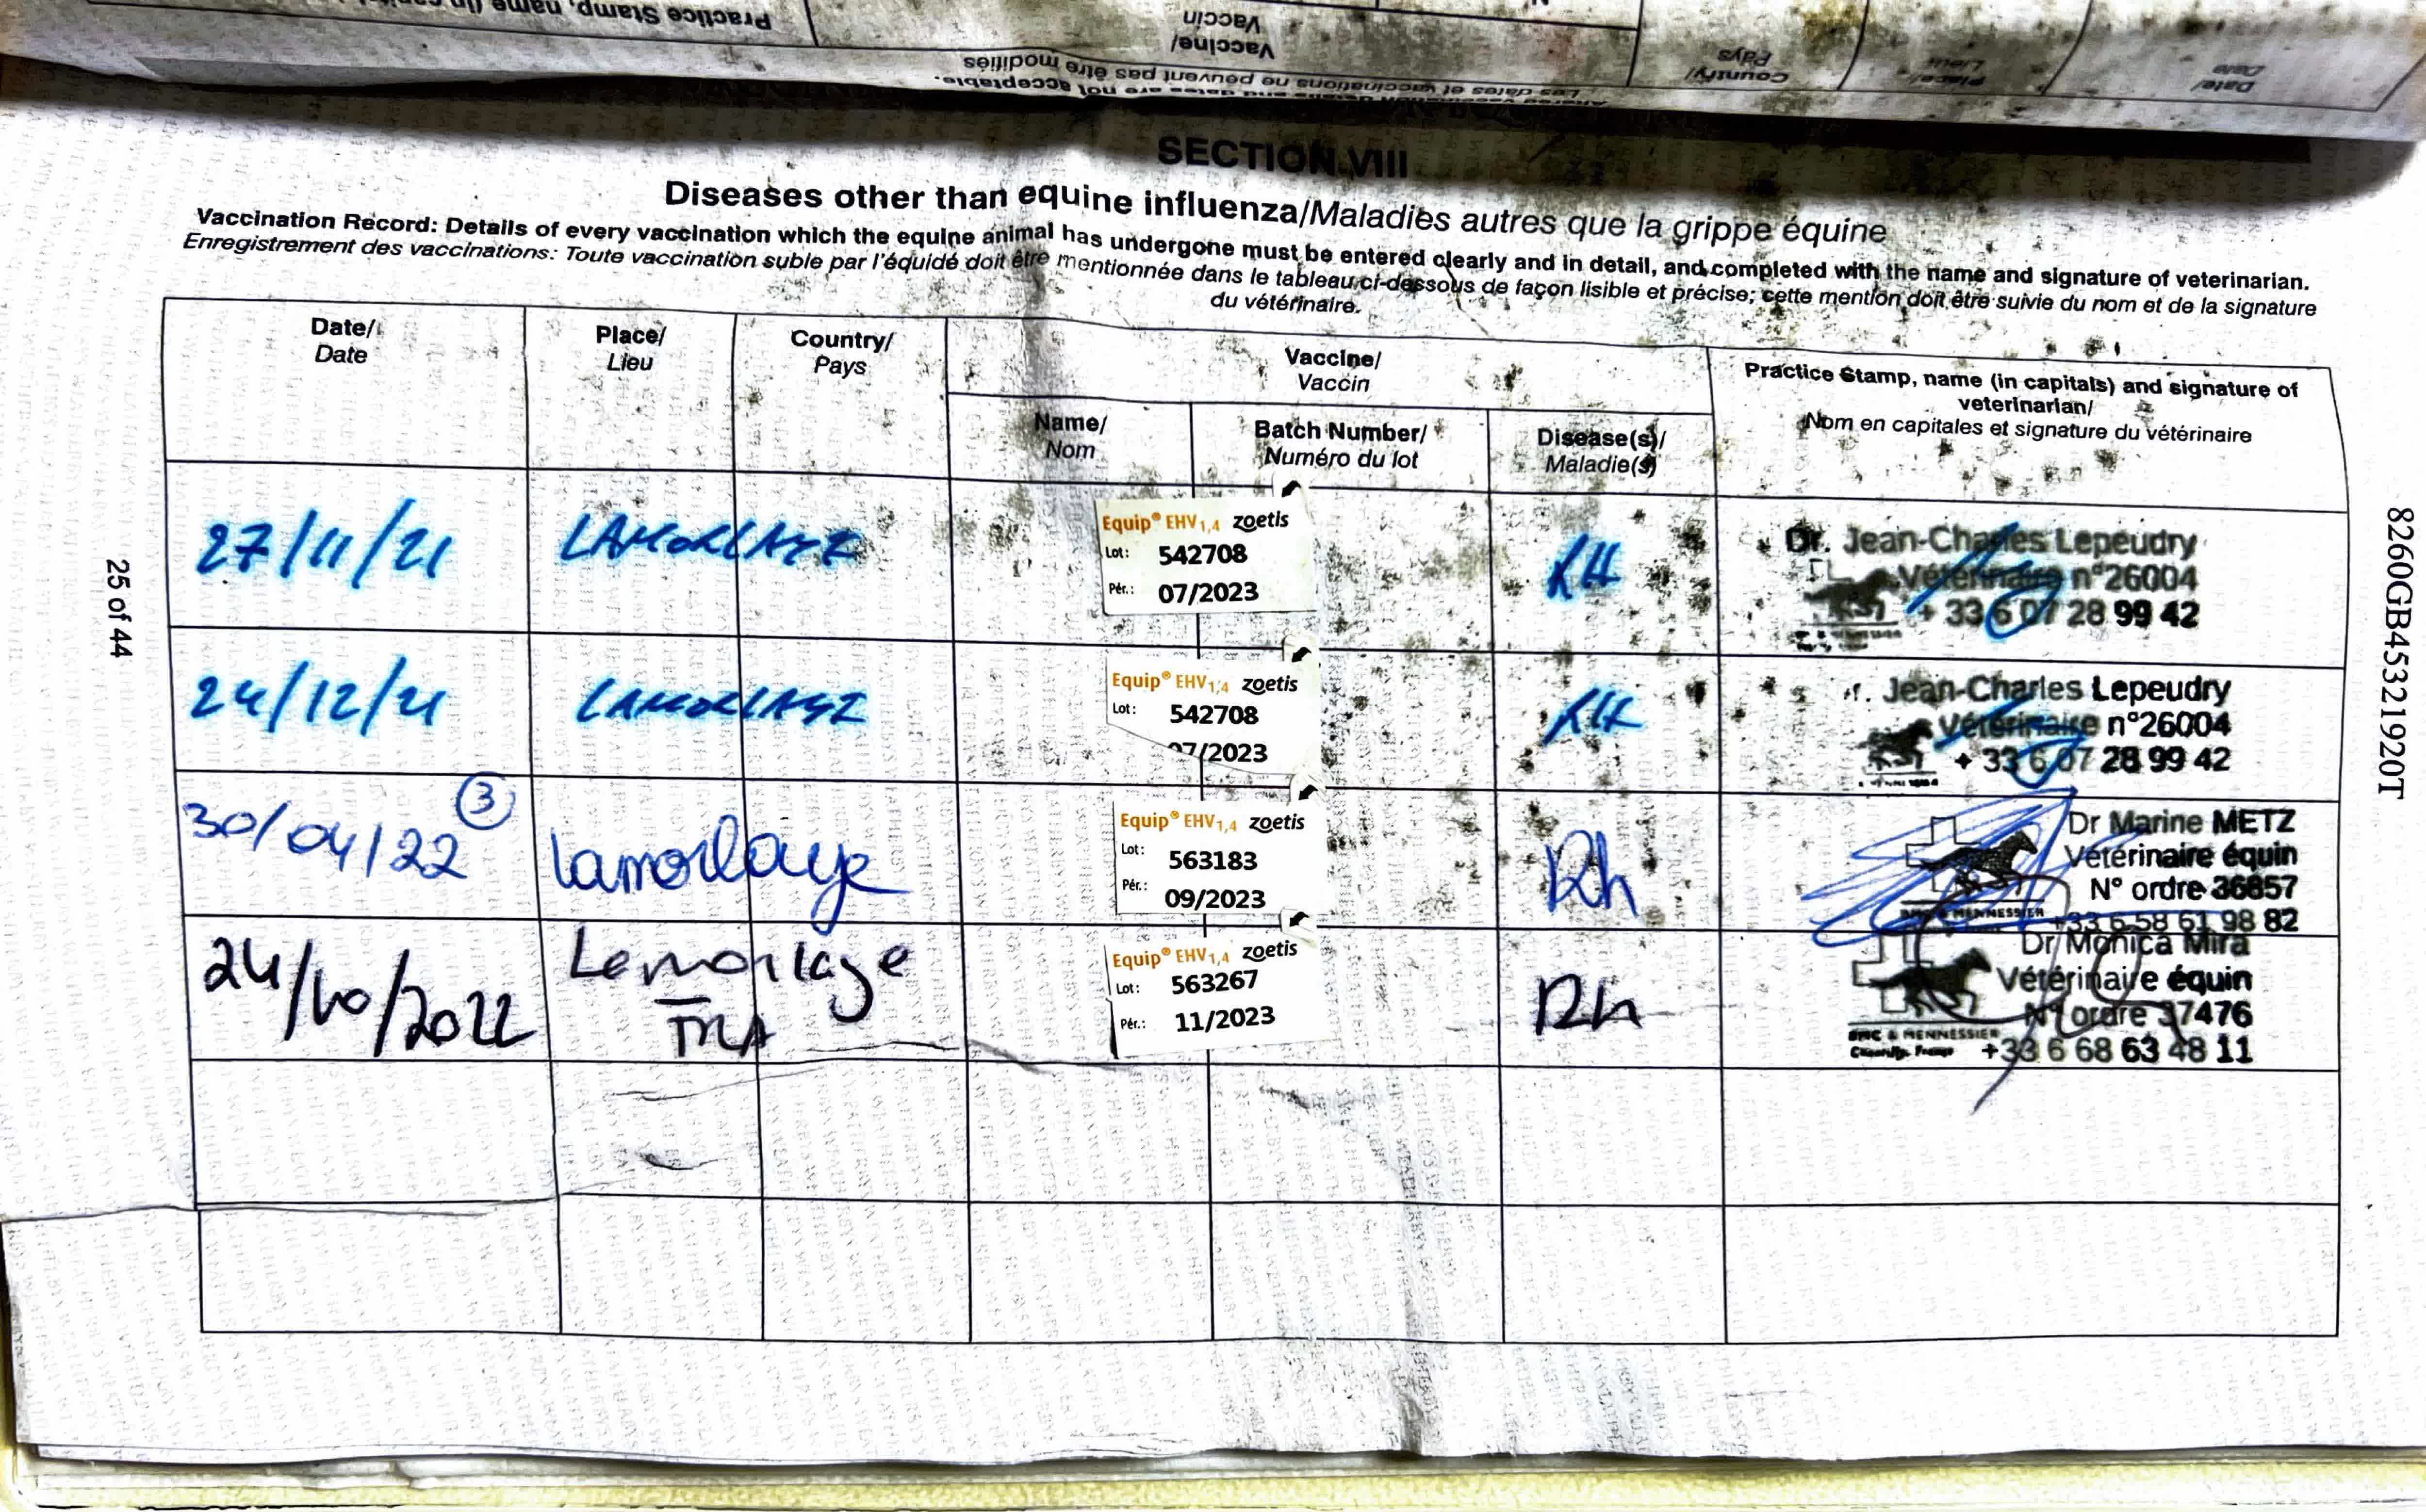 Practice Stamp, name
Vaccine/
Vaccin
Country/
Pays
Place/
Lieu
Date/
Date
Les dates et vaccinations ne peuvent pas être modifiés
SECTION VIII
Diseases other than equine influenza/Maladies autres que la grippe équine
Vaccination Record: Details of every vaccination which the equine animal has undergone must be entered clearly and in detail, and completed with the name and signature of veterinarian.
Enregistrement des vaccinations: Toute vaccination subie par l'équidé doit être mentionnée dans le tableau ci-dessous de façon lisible et précise; cette mention doit être suivie du nom et de la signature
du vétérinaire.
Date/
Date
Place/
Lieu
Country/
Pays
Vaccine/
Vaccin
Name/
Nom
Batch Number/
Numéro du lot
Disease(s)/
Maladie(s)
Practice Stamp, name (in capitals) and signature of
veterinarian/
Nom en capitales et signature du vétérinaire
27/11/21
LAMORLAYE
Equip® EHV1,4 zoetis
Lot: 542708
Pér.: 07/2023
RH
Dr. Jean-Charles Lepeudry
Vétérinaire n°26004
+ 33 6 07 28 99 42
24/12/21
LAMORLAYE
Equip® EHV1,4 zoetis
Lot: 542708
07/2023
RH
Jean-Charles Lepeudry
Vétérinaire n°26004
+ 33 6 07 28 99 42
30/04/22 3
Lamorlaye
Equip® EHV1,4 zoetis
Lot: 563183
Pér.: 09/2023
Rh
Dr Marine METZ
Vétérinaire équin
N° ordre 36857
+33 6 58 61 98 82
24/10/2022
Lamorlaye
FRA
Equip® EHV1,4 zoetis
Lot: 563267
Pér.: 11/2023
Rh
Dr Monica Mira
Vétérinaire équin
N° ordre 37476
BMC & MENNESSIER
Chantilly, France
+33 6 68 63 48 11
25 of 44
8260GB45321920T